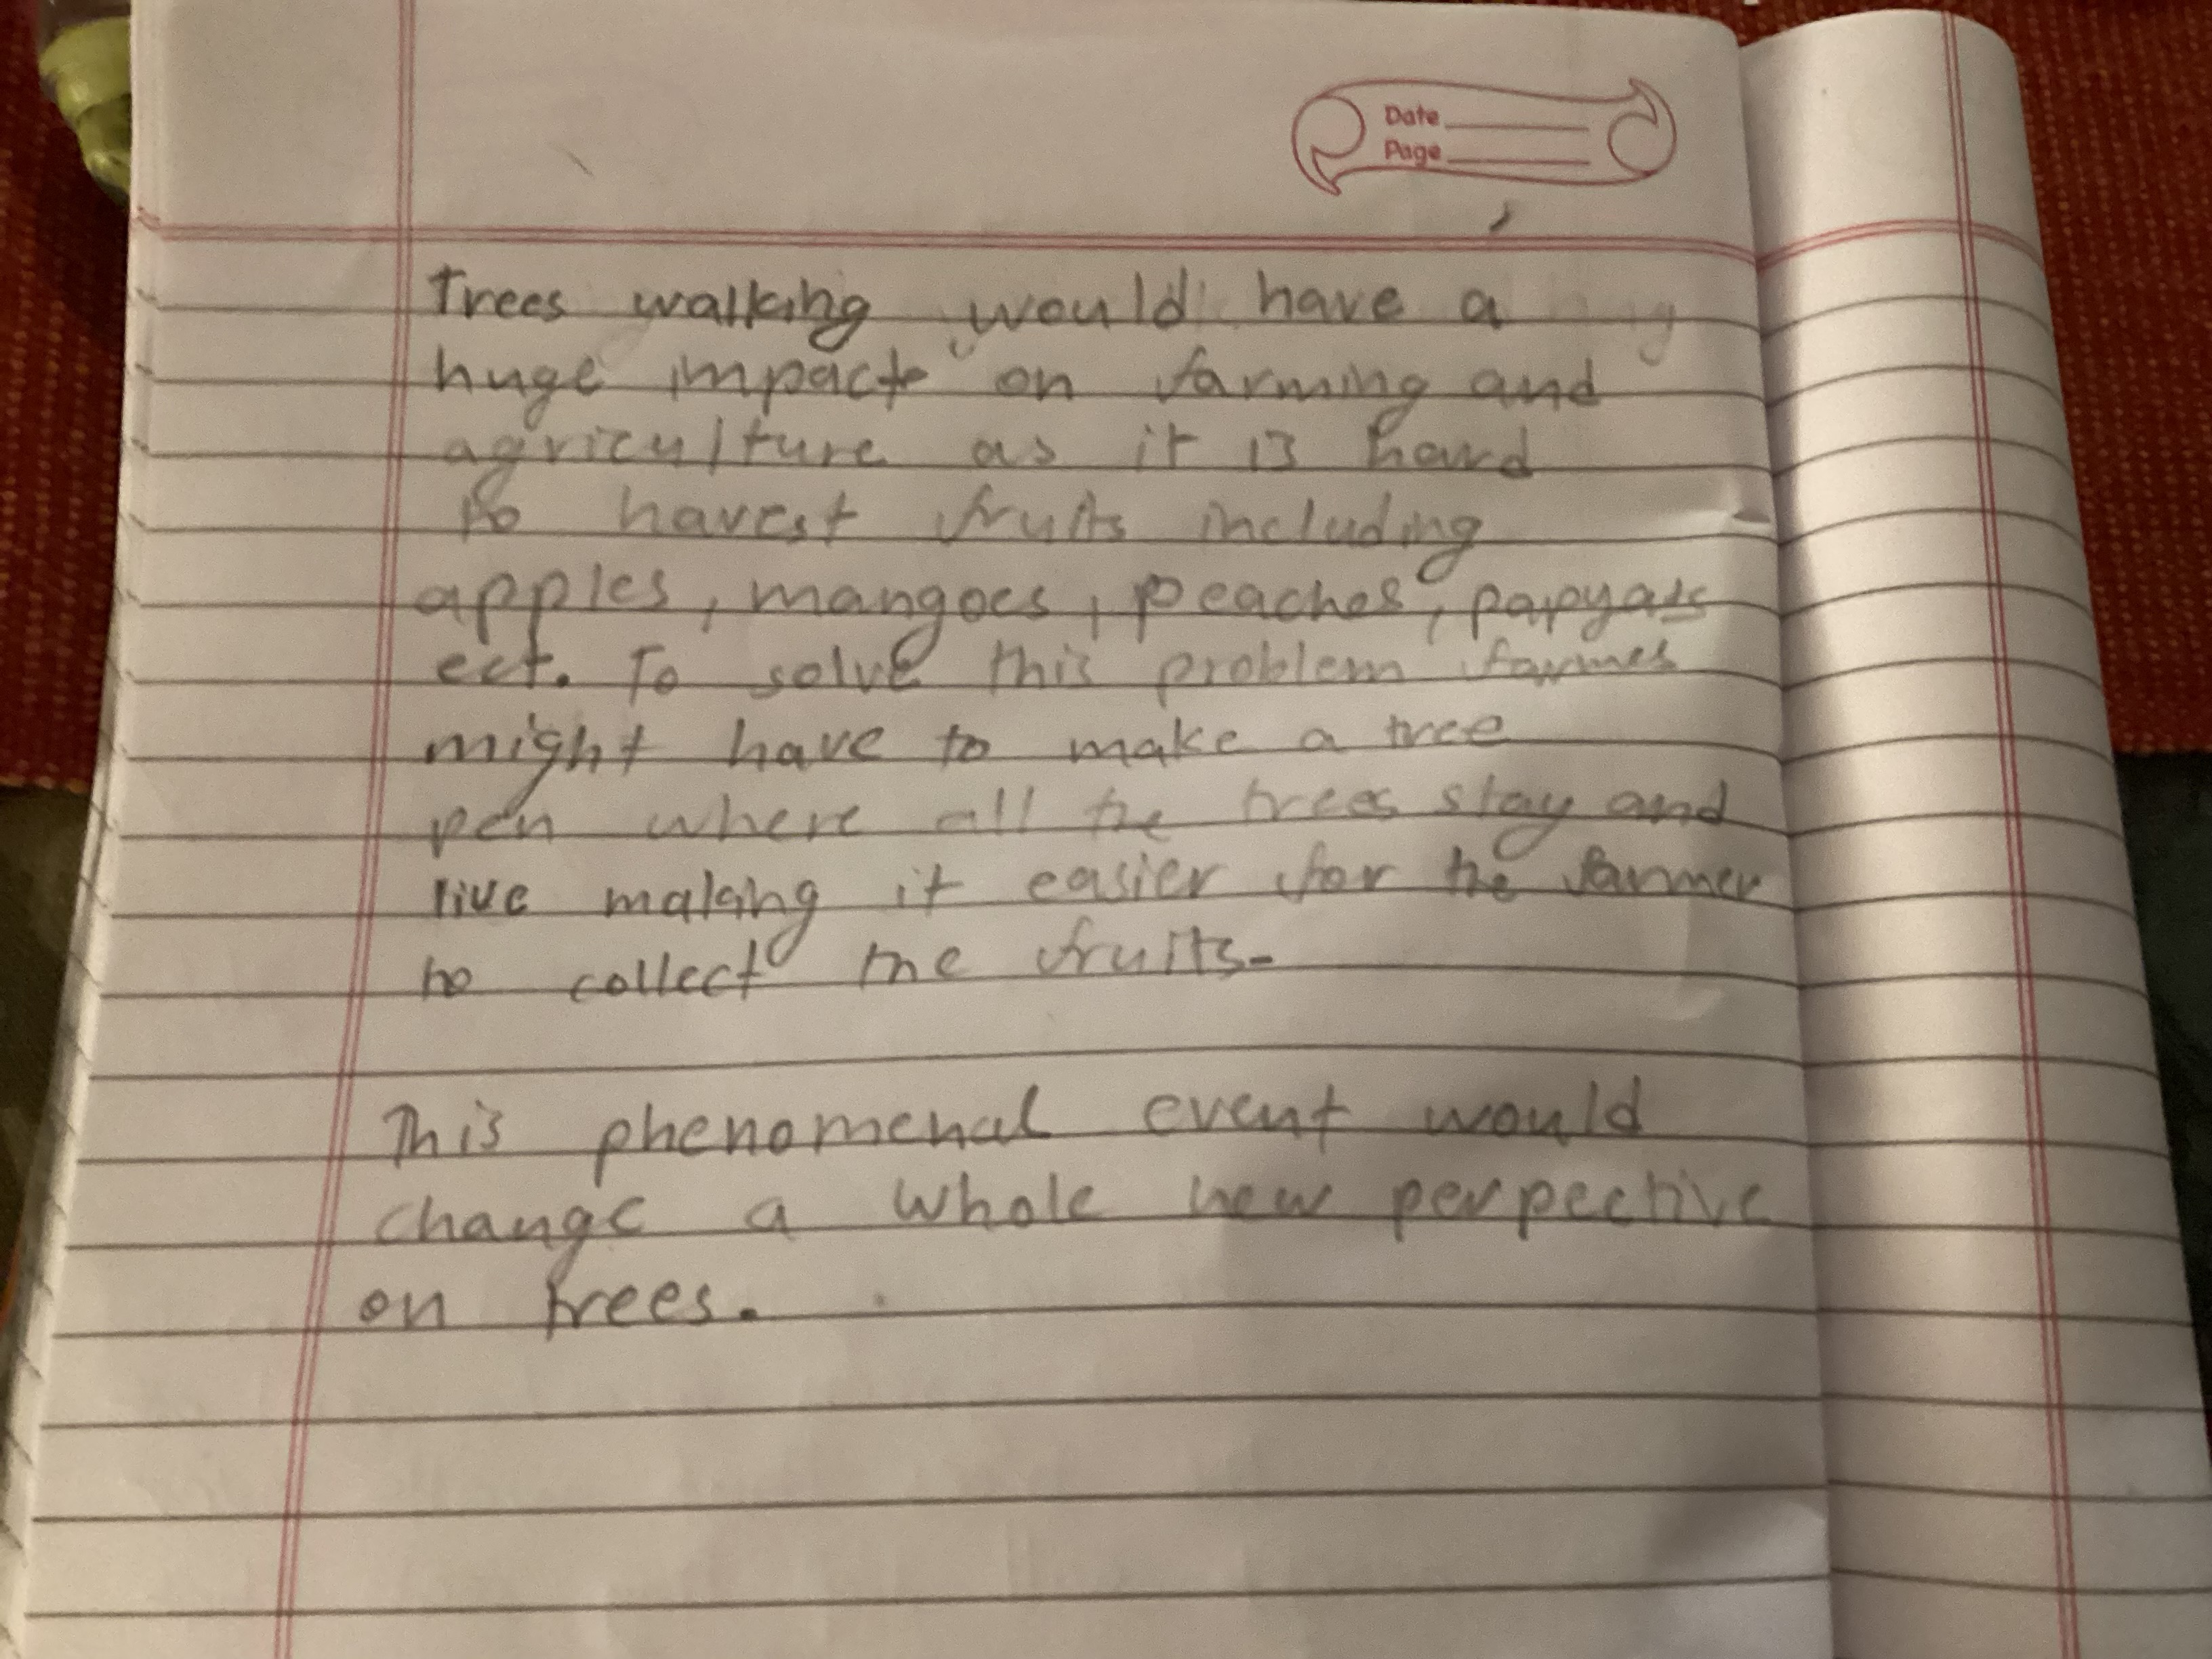 Date
Page
Trees walking would have a
huge impact on farming and
agriculture as it is hard
to havest fruits including
apples, mangoes, peaches, papyas
ect. To solve this problem farmes
might have to make a tree
pen where all the trees stay and
live making it easier for the farmer
to collect the fruits.
This phenomenal event would
change a whole new perpective
on trees.